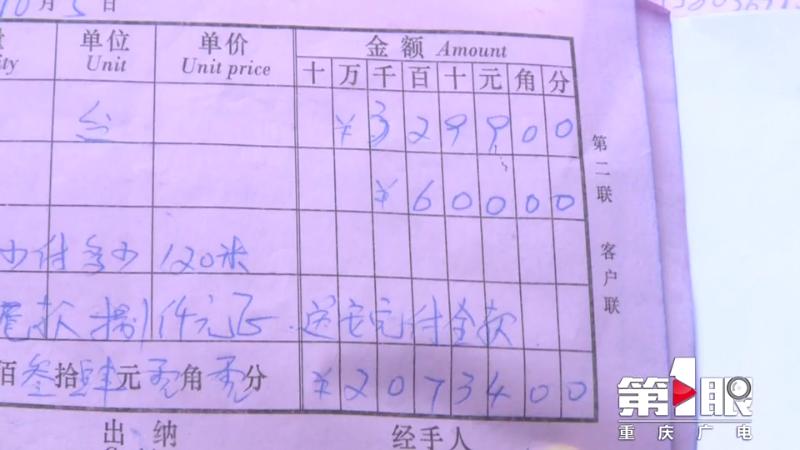 10月5日
单位 单价 金额 Amount
ity Unit Unit price 十 万 千 百 十 元 角 分
台 ¥ 3 2 9 9 0 0
¥ 6 0 0 0 0
少付多少 120米
尾款捌仟元正 送安完付全款
佰叁拾肆元零角零分 ¥ 2 0 7 3 4 0 0
出纳 经手人
第二联 客户联
第1眼
重庆广电